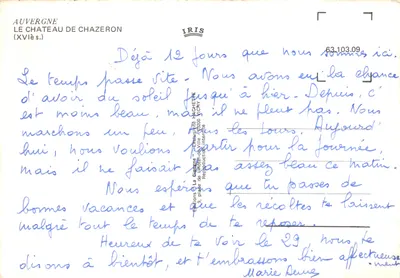 AUVERGNE
LE CHATEAU DE CHAZERON
(XVIè s.)
IRIS
63.103.09
Déjà 12 jours que nous sommes ici.
Le temps passe vite. Nous avons eu la chance
d'avoir du soleil jusqu'à hier. Depuis, c'
est moins beau, mais il ne pleut pas. Nous
marchons un peu, tous les jours. Aujourd'
hui, nous voulions partir pour la journée,
mais il ne faisait pas assez beau ce matin.
Nous espérons que tu passes de
bonnes vacances et que les récoltes te laissent
malgré tout le temps de te reposer.
Heureux de te voir le 29, nous te
disons à bientôt, et t'embrassons bien affectueuse
ment
Marie